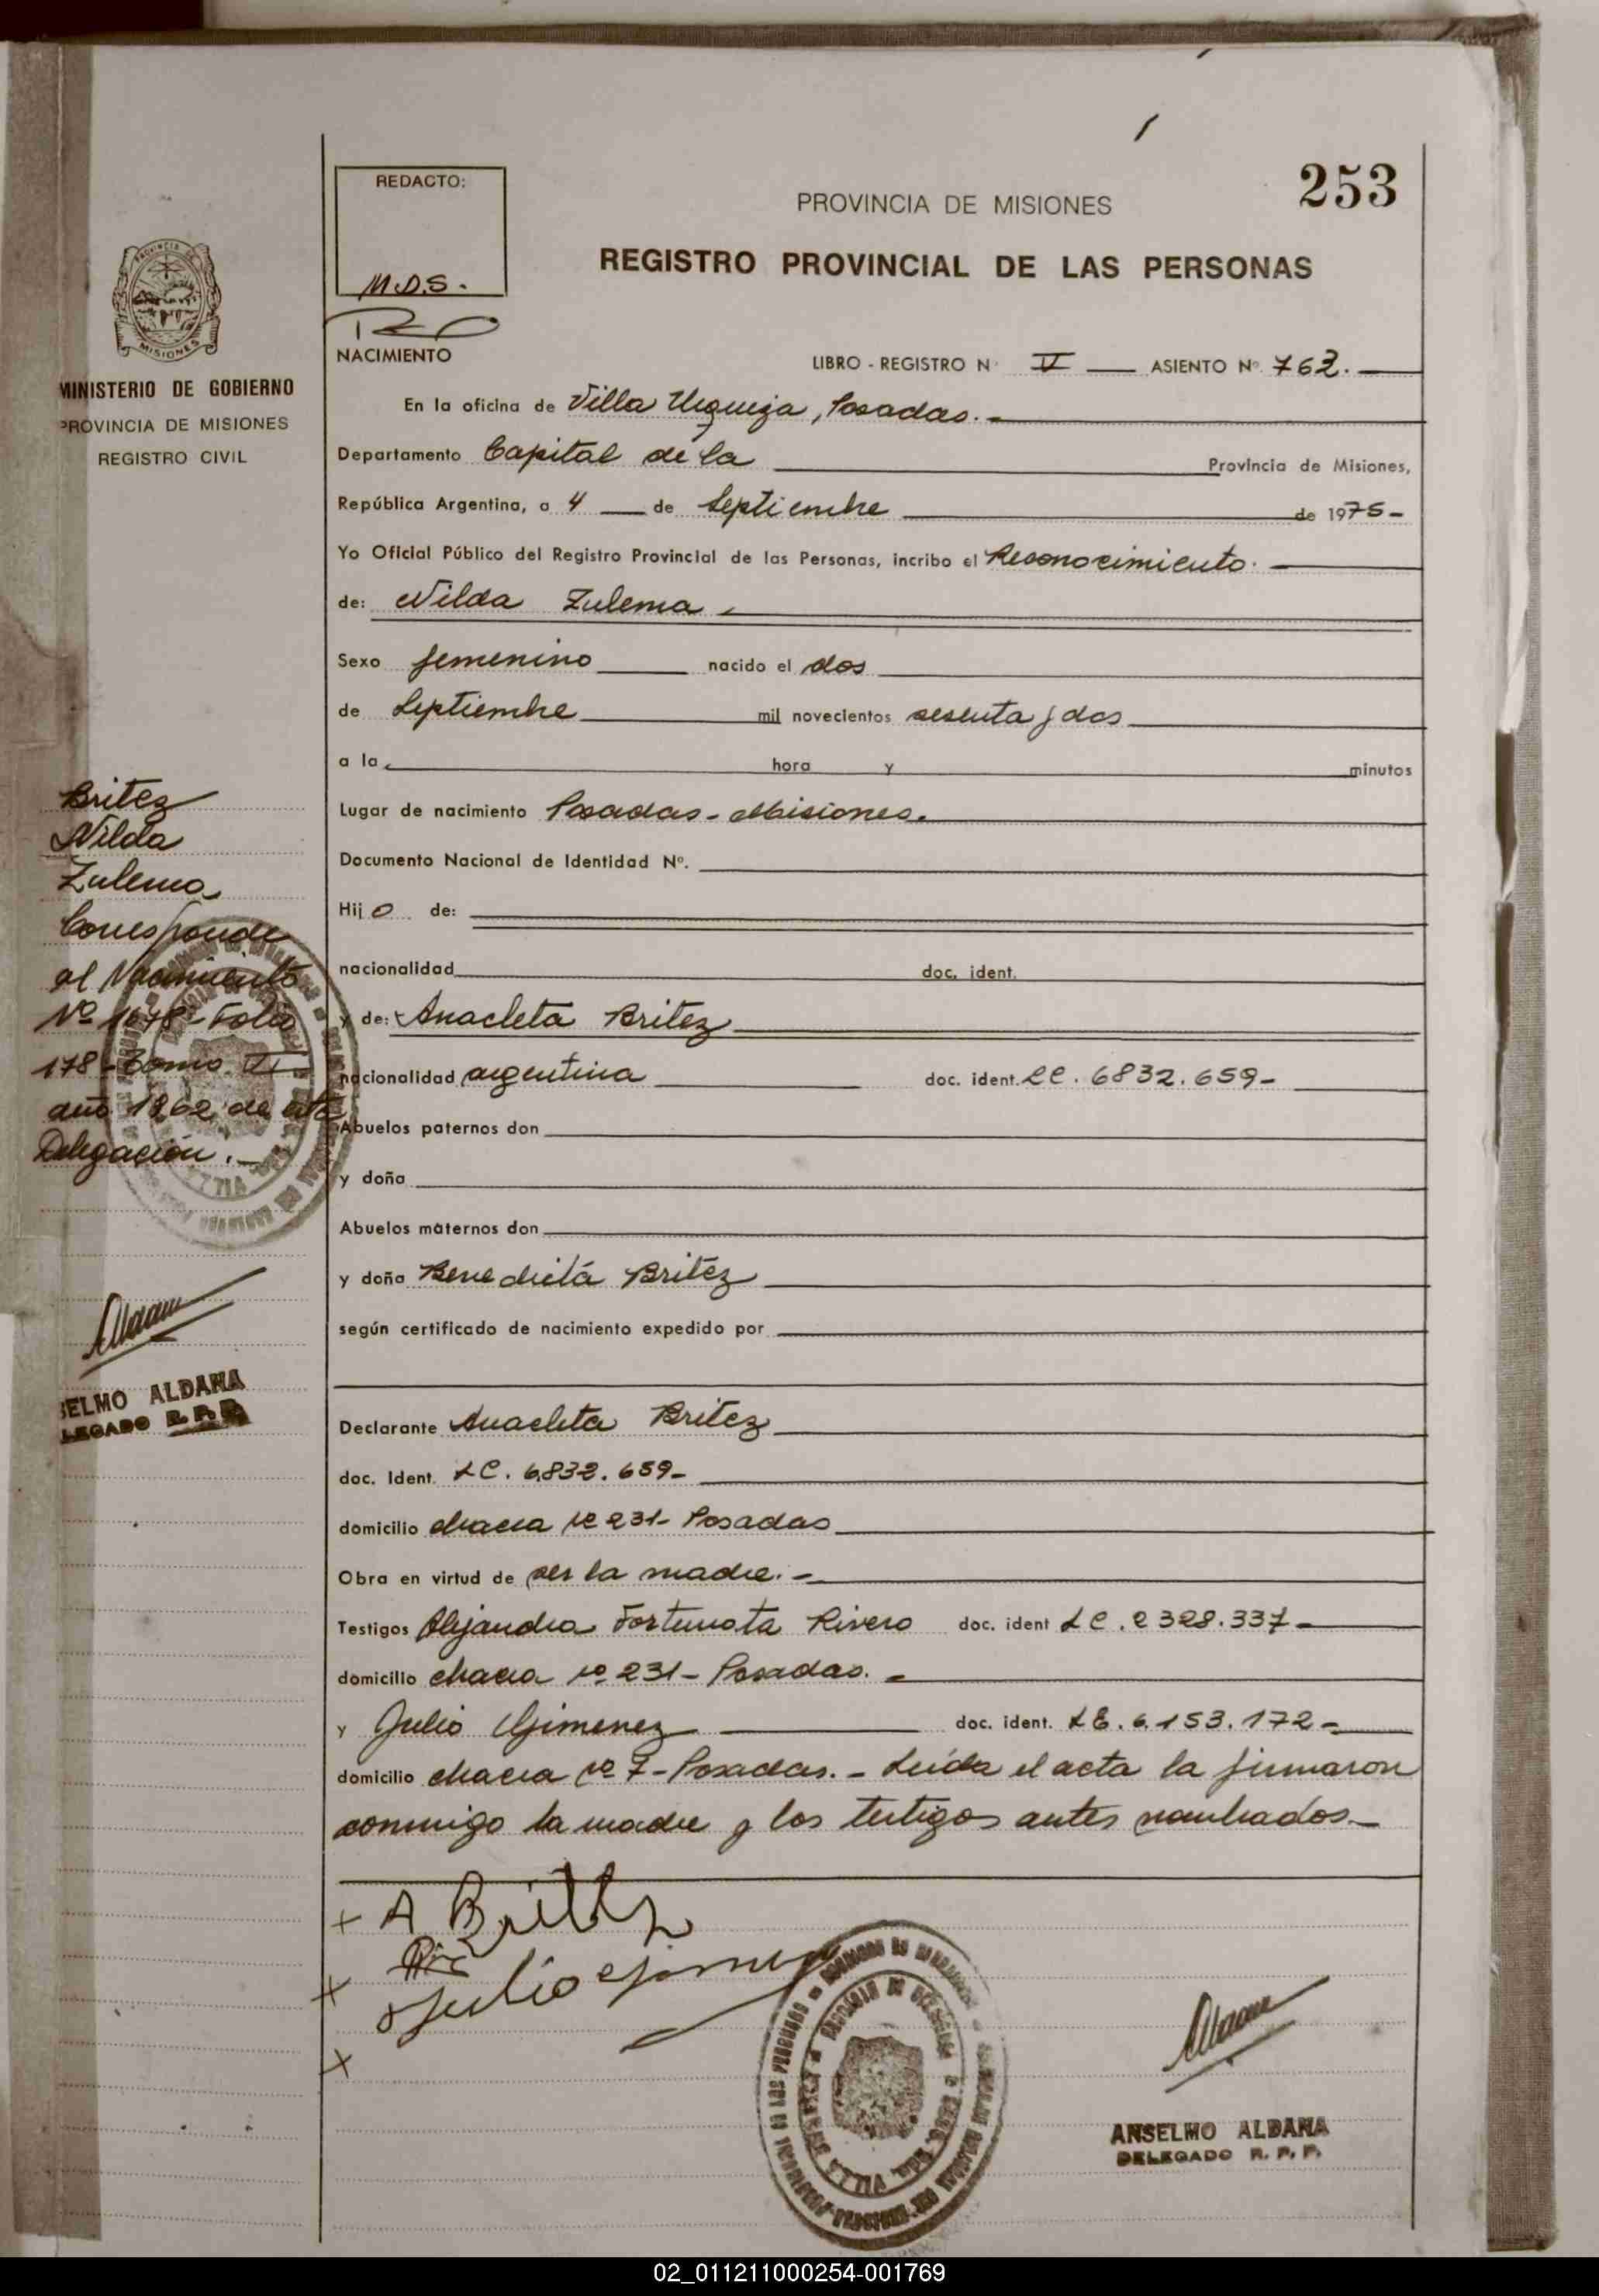 253
REDACTO:
M.D.S.
PROVINCIA DE MISIONES
REGISTRO PROVINCIAL DE LAS PERSONAS
NACIMIENTO
LIBRO - REGISTRO Nº V ASIENTO Nº 763.
En la oficina de Villa Urquiza, Posadas.-
Departamento Capital de la Provincia de Misiones,
República Argentina, a 4 de Septiembre de 1975-
Yo Oficial Público del Registro Provincial de las Personas, incribo el Reconocimiento.
de: Nilda Zulema
Sexo femenino nacido el dos
de Septiembre mil novecientos sesenta y dos
a la hora y minutos
Lugar de nacimiento Posadas - Misiones.
Documento Nacional de Identidad Nº.
Hijo de:
nacionalidad doc. ident.
y de: Anacleta Britez
nacionalidad argentina doc. ident. LC. 6832.659-
Abuelos paternos don
y doña
Abuelos maternos don
y doña Benedicta Britez
según certificado de nacimiento expedido por
Declarante Anacleta Britez
doc. Ident. LC. 6.832.659-
domicilio chacra nº 231- Posadas
Obra en virtud de ser la madre.-
Testigos Alejandra Fortunata Rivero doc. ident LC. 2328.337-
domicilio chacra nº 231- Posadas.-
y Julio Gimenez doc. ident. LE. 6.153.172-
domicilio chacra nº 7- Posadas.- Leída el acta la firmaron
conmigo la madre y los testigos antes nombrados-
A Brittz
Julio Gimenez
ANSELMO ALDANA
DELEGADO R. P. P.
MISIONES
MINISTERIO DE GOBIERNO
PROVINCIA DE MISIONES
REGISTRO CIVIL
Britez
Nilda
Zulema
Corresponde
al Nacimiento
Nº 1678- Folio
178- Tomo VI
año 1962 de esta
Delegación.-
SELMO ALDANA
LEGADO R. P. P.
02_011211000254-001769